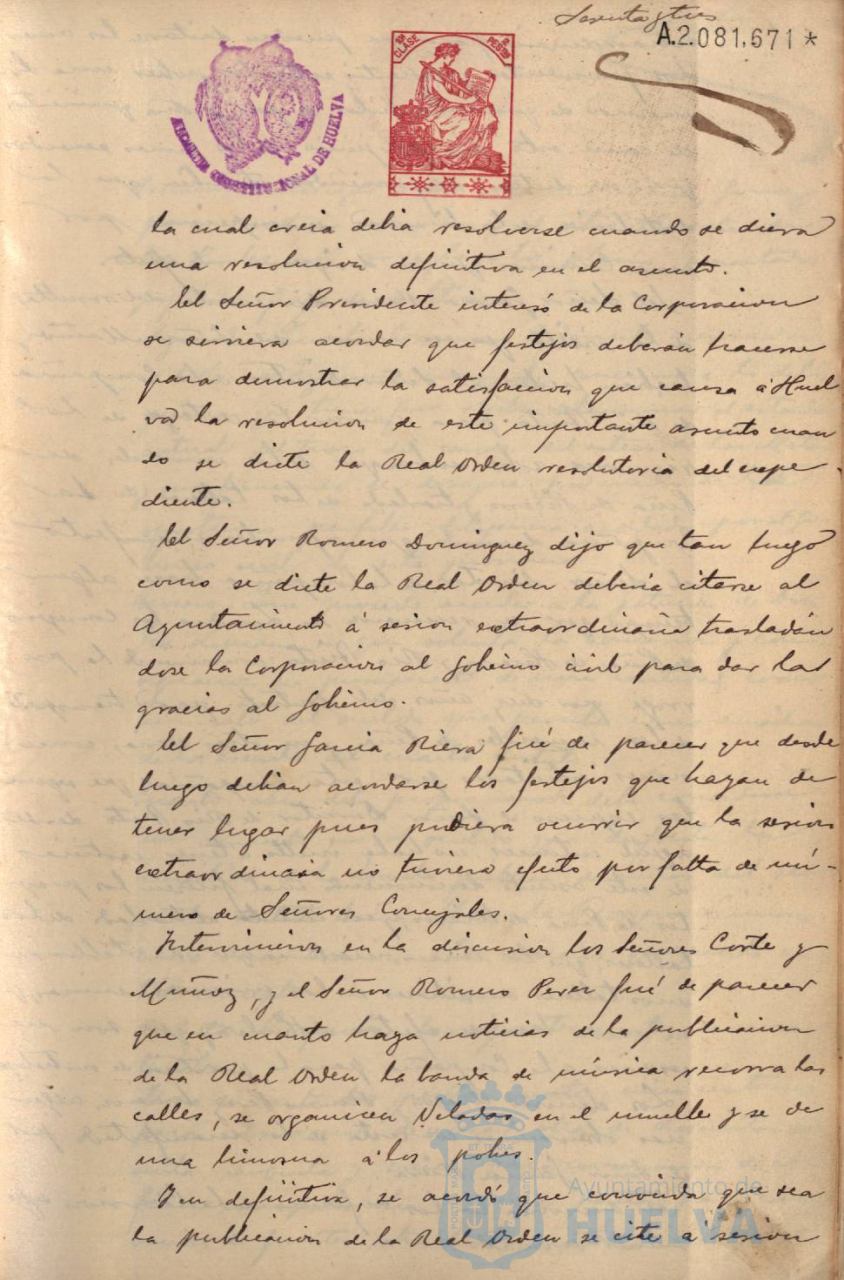 Sesenta y tres
A.2.081,671*
11ª CLASE
2 PESETAS
AYUNTAMIENTO CONSTITUCIONAL DE HUELVA
la cual creia debia resolverse cuando se diera
una resolucion definitiva en el asunto.
El Señor Presidente interesó de la Corporacion
se sirviera acordar que festejos deberán hacerse
para demostrar la satisfaccion que causa á Huel
va la resolucion de este importante asunto cuan
do se dicte la Real Orden resolutoria del espe-
diente.
El Señor Romero Dominguez dijo que tan luego
como se dicte la Real Orden deberia citarse al
Ayuntamiento á sesion extraordinaria trasladán
dose la Corporacion al Gobierno civil para dar las
gracias al Gobierno.
El Señor Garcia Riera fué de parecer que desde
luego debian acordarse los festejos que hayan de
tener lugar pues pudiera ocurrir que la sesion
extraordinaria no tuviera efecto por falta de nú-
mero de Señores Concejales.
Intervinieron en la discusion los Señores Corte y
Muñoz, y el Señor Romero Perez fué de parecer
que en cuanto haya noticias de la publicacion
de la Real Orden la banda de música recorra las
calles, se organicen Veladas en el muelle y se de
una limosna á los pobres.
Y en definitiva, se acordó que conocida que sea
la publicacion de la Real Orden se cite á sesion
Ayuntamiento de
HUELVA